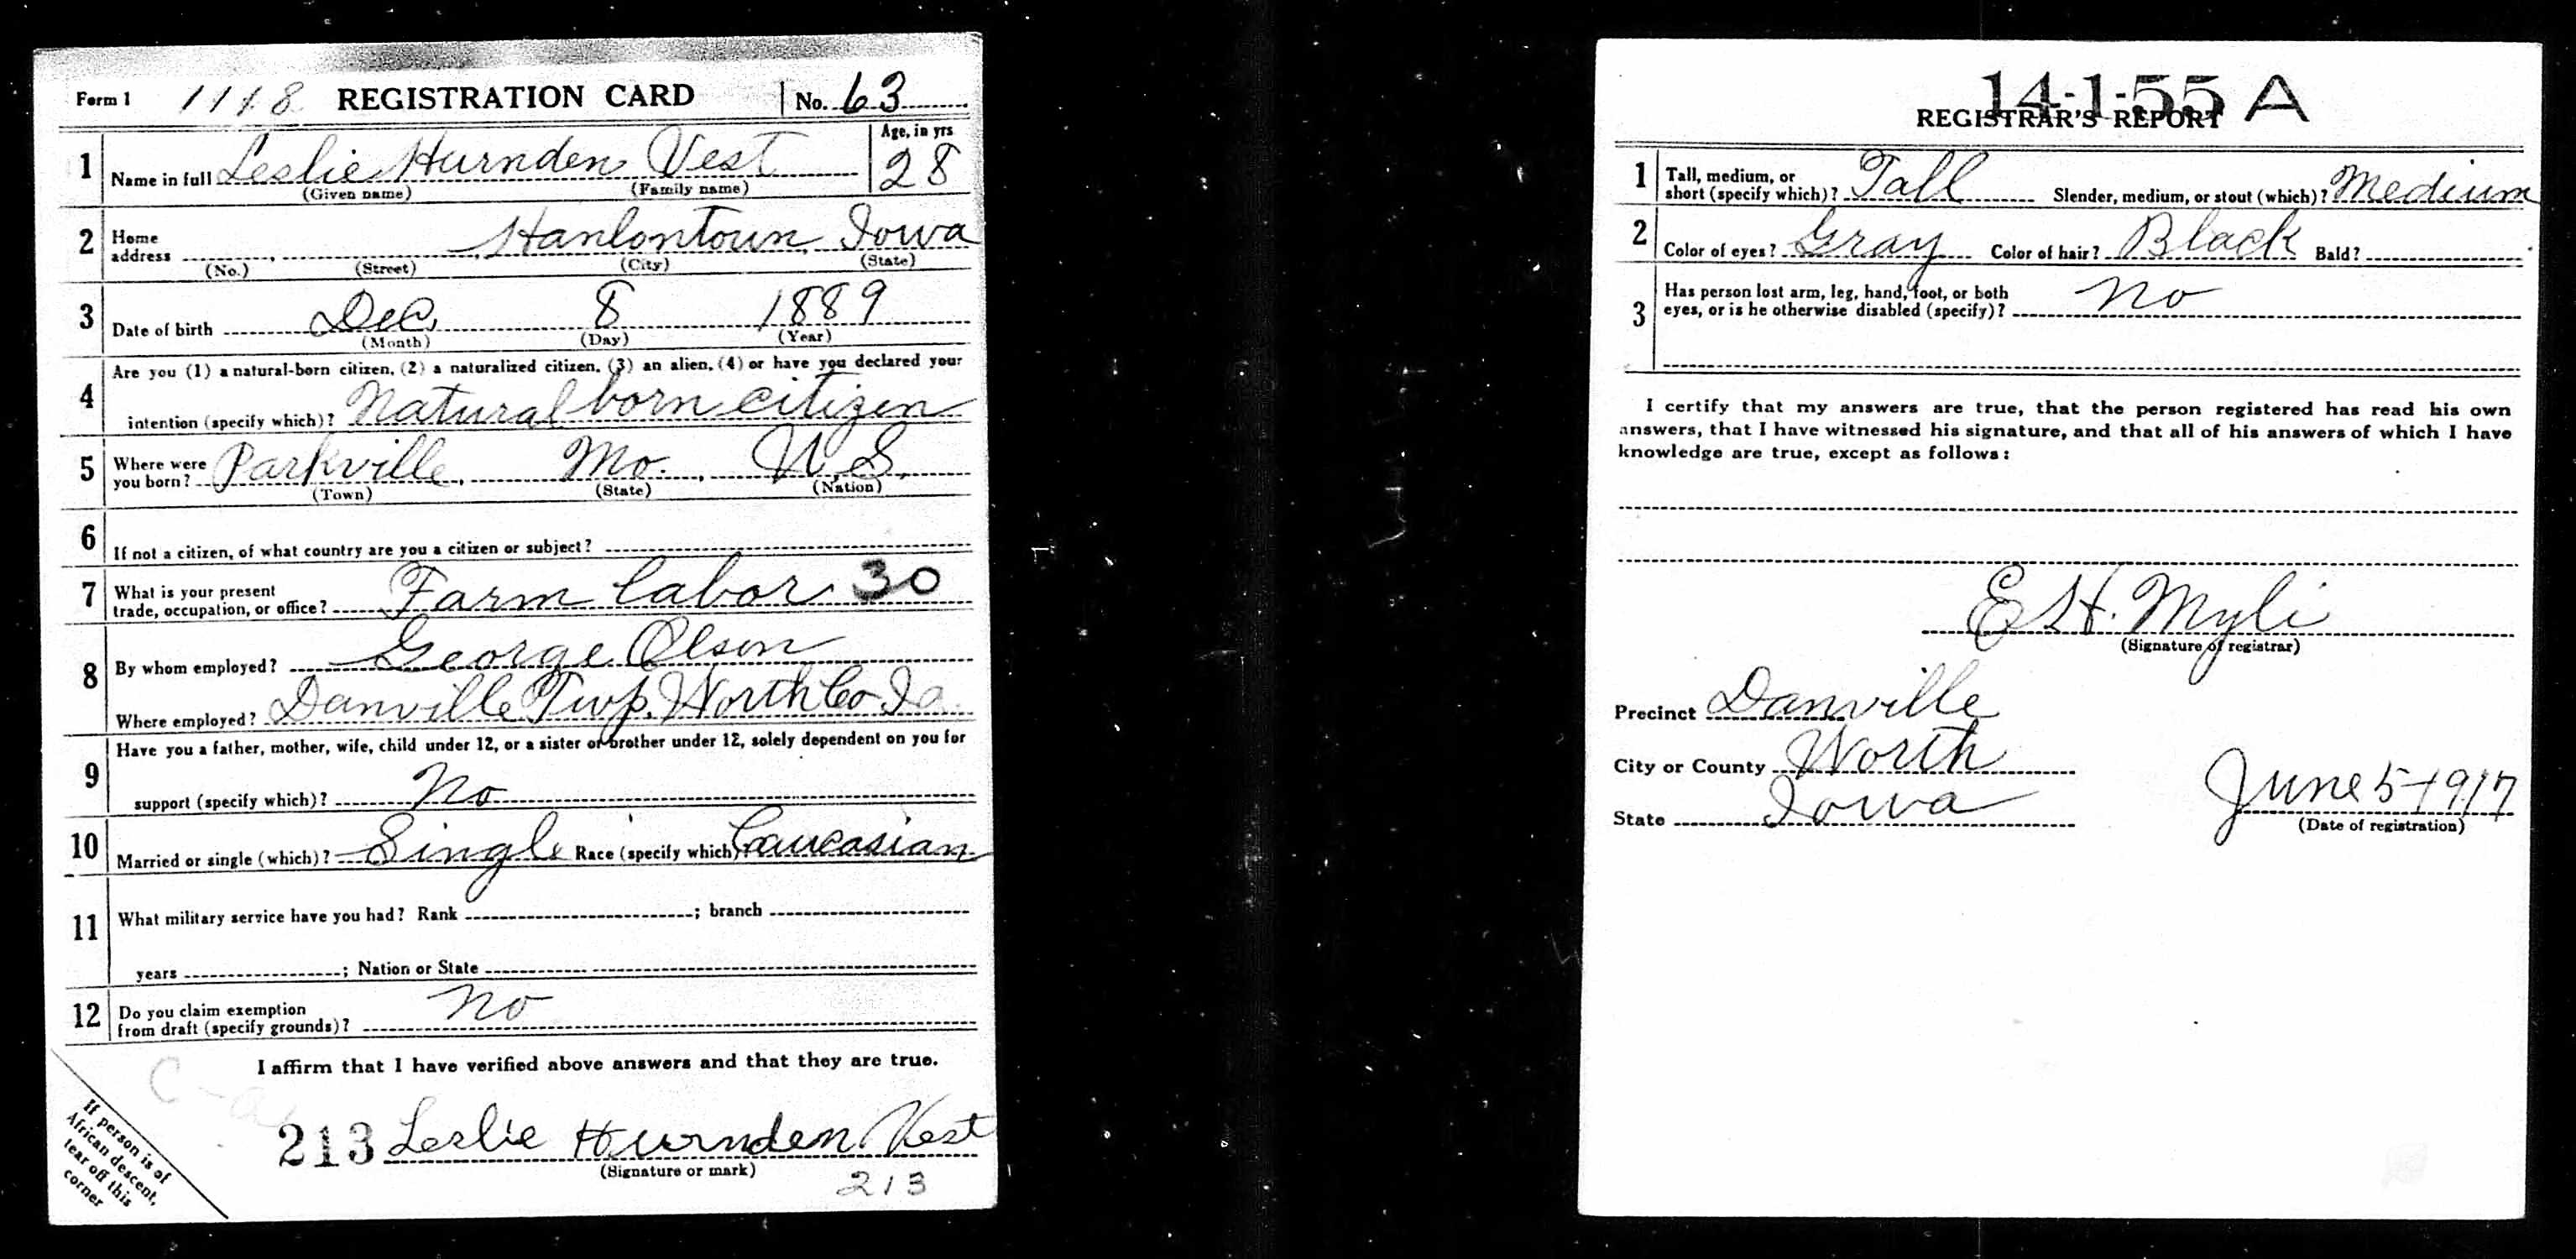 Form 1 1118 REGISTRATION CARD No. 63
1 Name in full Leslie Hurnden Vest Age, in yrs 28
(Given name) (Family name)
2 Home address Hanlontown, Iowa
(No.) (Street) (City) (State)
3 Date of birth Dec. 8 1889
(Month) (Day) (Year)
4 Are you (1) a natural-born citizen, (2) a naturalized citizen, (3) an alien, (4) or have you declared your
intention (specify which)? Natural born citizen
5 Where were you born? Parkville, Mo., U.S.
(Town) (State) (Nation)
6 If not a citizen, of what country are you a citizen or subject?
7 What is your present trade, occupation, or office? Farm labor 30
8 By whom employed? George Olson
Where employed? Danville Twp. Worth Co Ia.
9 Have you a father, mother, wife, child under 12, or a sister or brother under 12, solely dependent on you for
support (specify which)? No
10 Married or single (which)? Single Race (specify which)? Caucasian
11 What military service have you had? Rank ; branch
years ; Nation or State
12 Do you claim exemption from draft (specify grounds)? No
I affirm that I have verified above answers and that they are true.
213 Leslie Hurnden Vest
(Signature or mark)
213
If person is of
African descent,
tear off this
corner
14-1-55 A
REGISTRAR'S REPORT
1 Tall, medium, or short (specify which)? Tall Slender, medium, or stout (which)? Medium
2 Color of eyes? Gray Color of hair? Black Bald?
3 Has person lost arm, leg, hand, foot, or both
eyes, or is he otherwise disabled (specify)? No
I certify that my answers are true, that the person registered has read his own
answers, that I have witnessed his signature, and that all of his answers of which I have
knowledge are true, except as follows:
E H. Myli
(Signature of registrar)
Precinct Danville
City or County Worth
State Iowa
June 5-1917
(Date of registration)